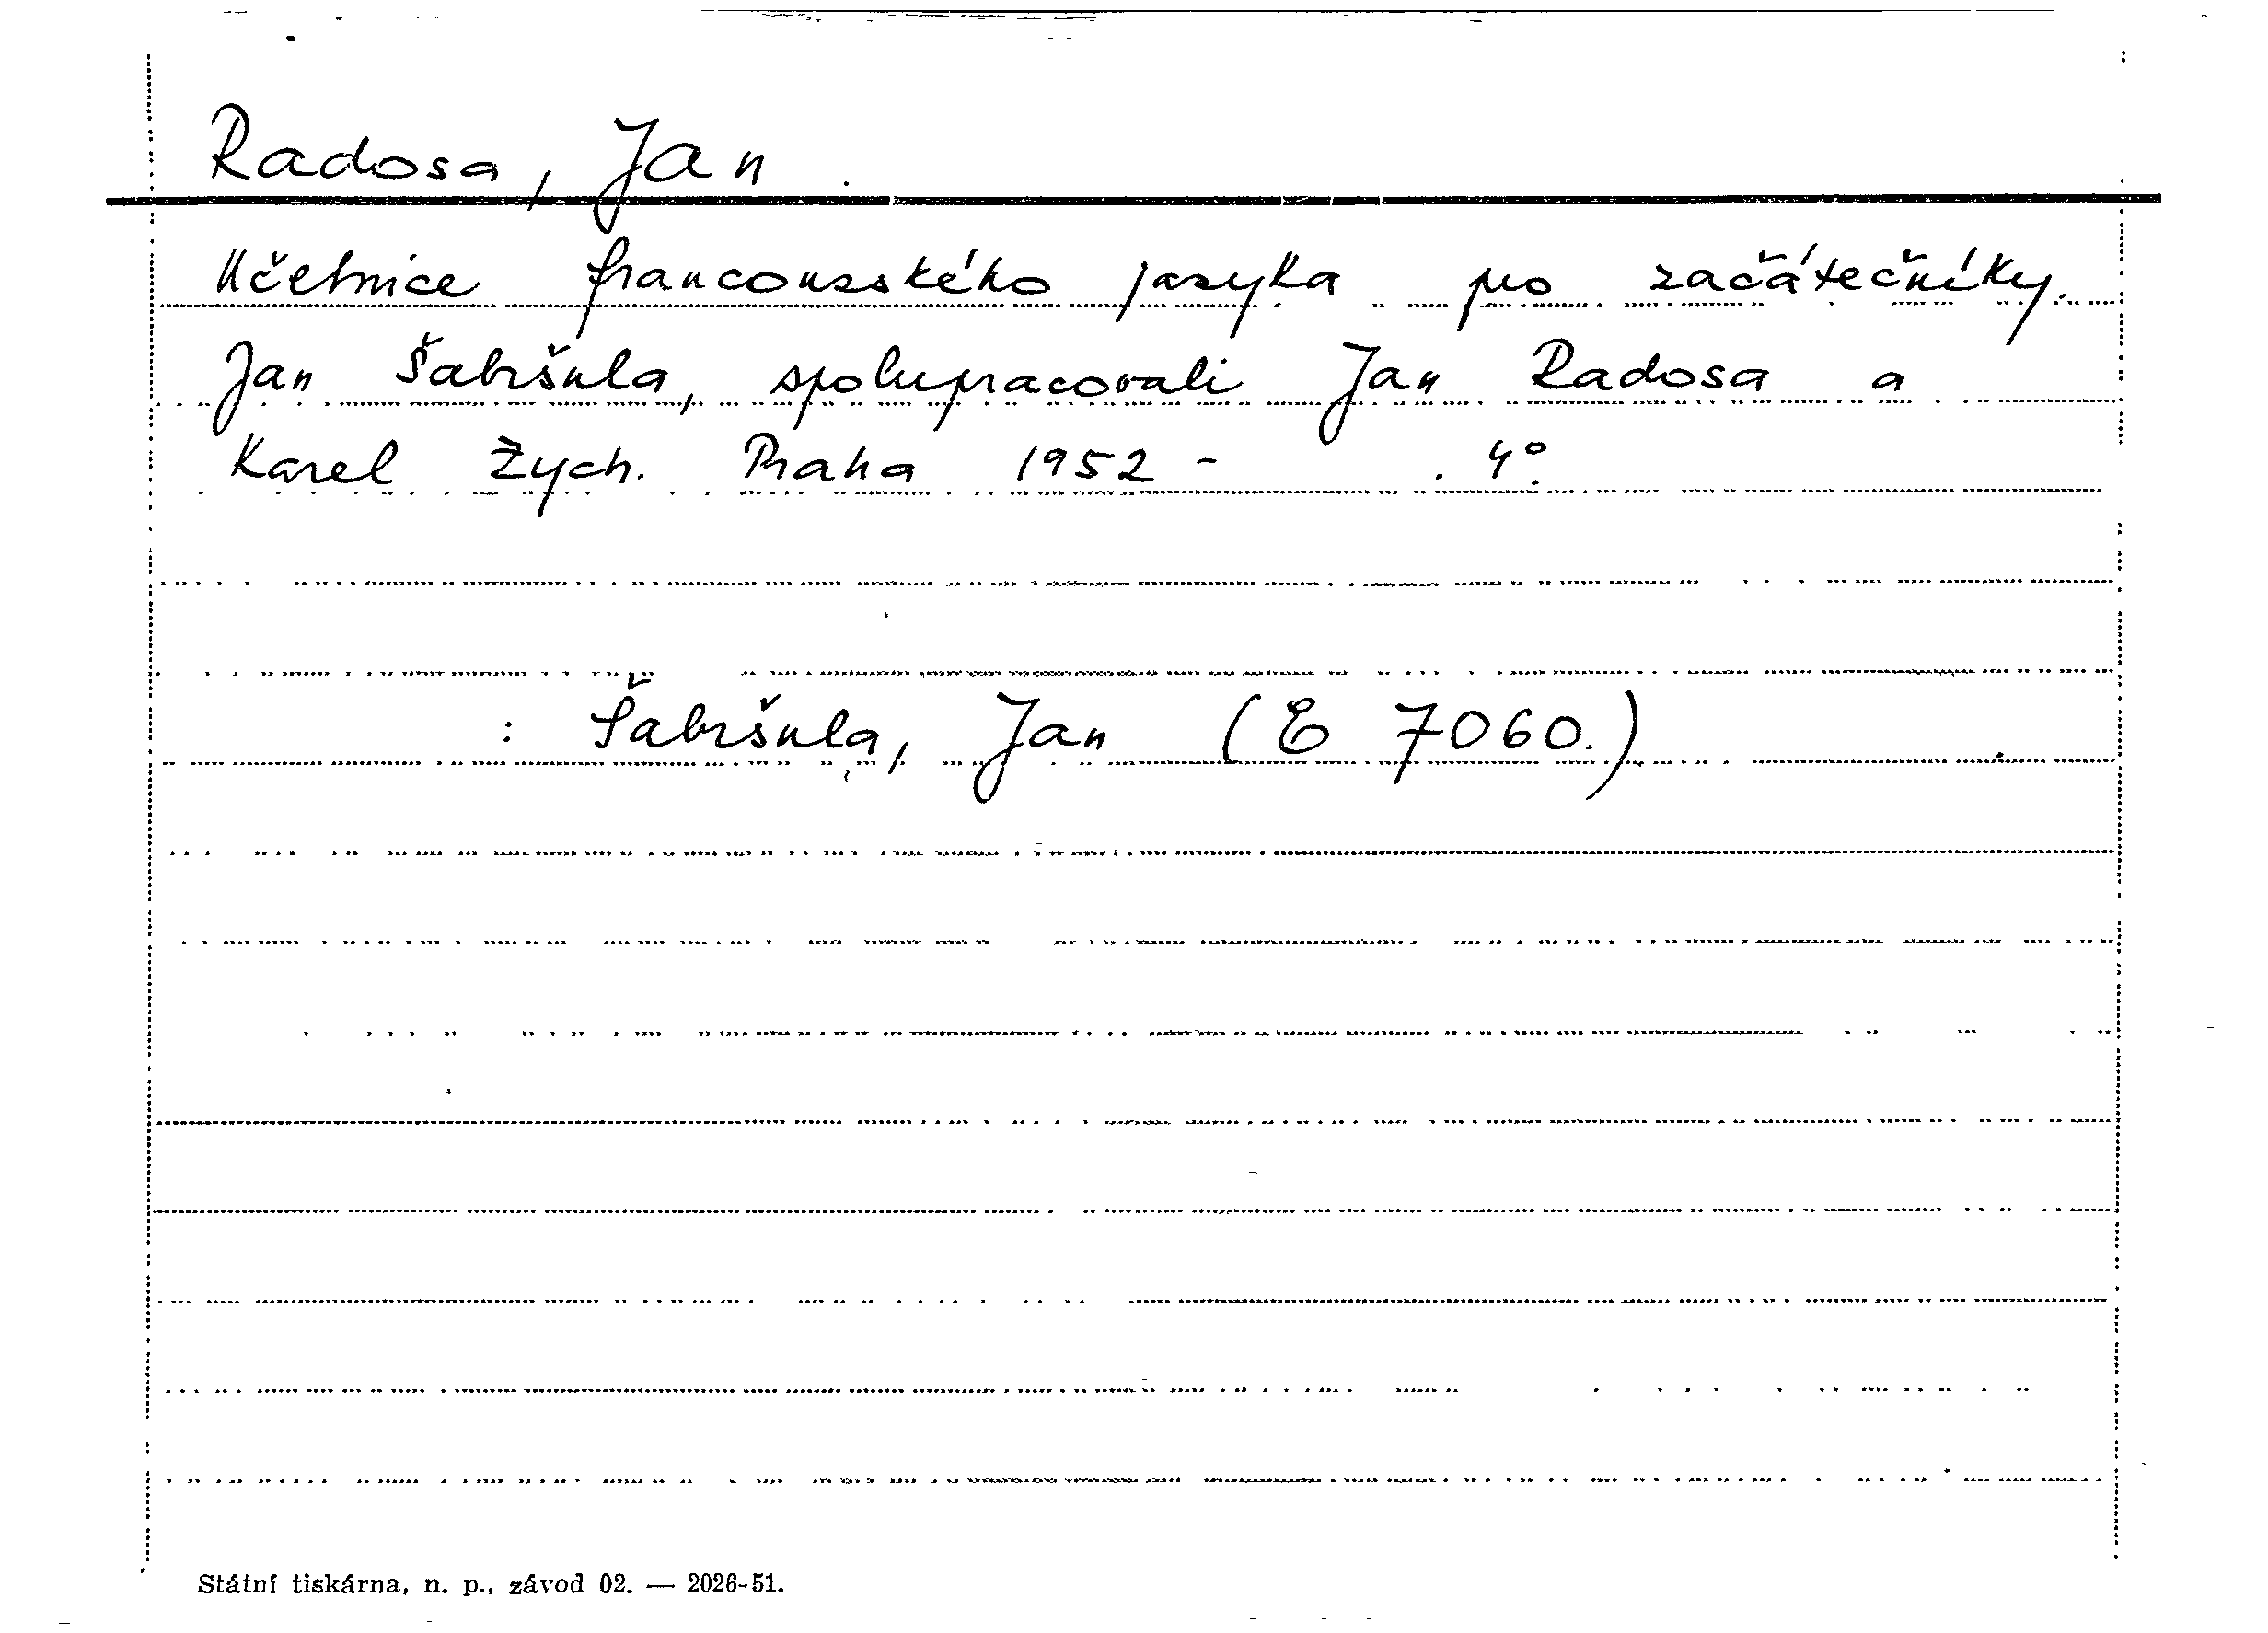 Radosa, Jan
Učebnice francouzského jazyka pro začátečníky.
Jan Šabršula, spolupracovali Jan Radosa a
Karel Zych. Praha 1952 - . 4°.
: Šabršula, Jan (E 7060.)
Státní tiskárna, n. p., závod 02. — 2026-51.